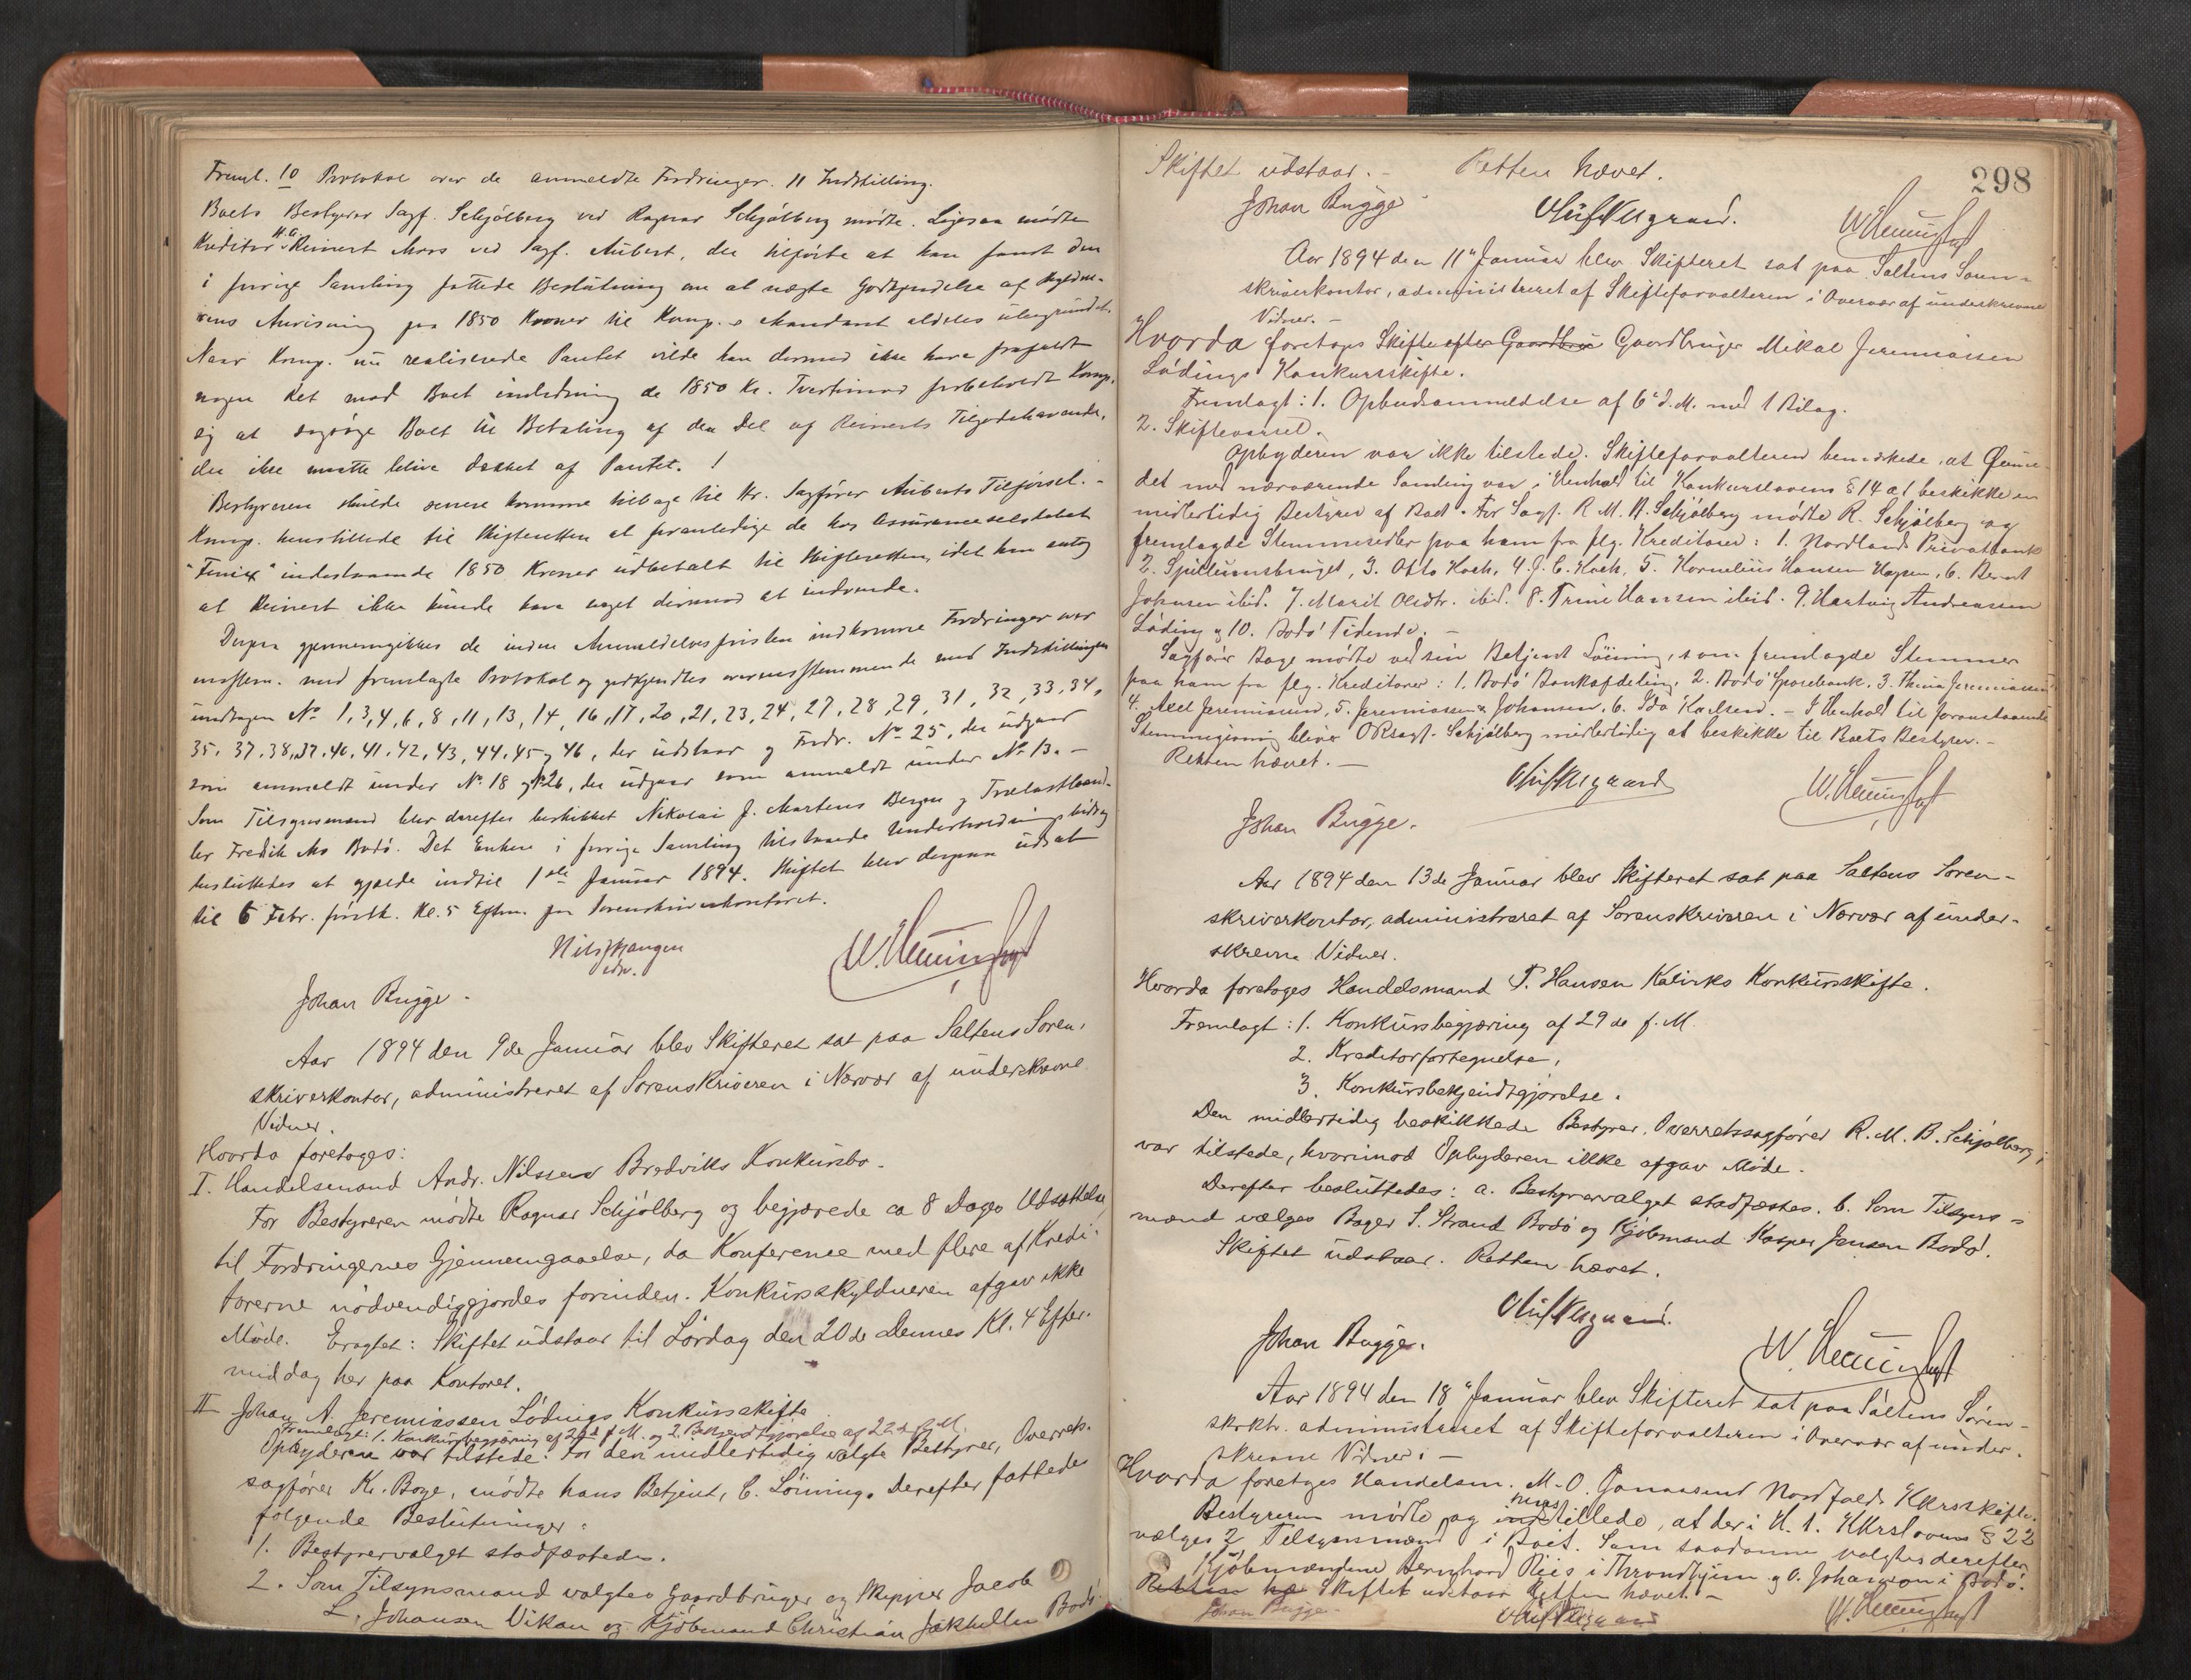 Freml. 10 Protokol over de anmeldte Fordringer. 11 Indstilling.
Boets Bestyrer Sagf. Schjølberg ved Ragnar Schjølberg mødte. Ligesaa mødte
Kreditor H. G. Reinert Moss ved Sagf. Aubert, der tilførte at han fandt den
i forrige Samling fattede Beslutning om at nægte Godkjendelse af
Anvisning paa 1850 Kroner til Komp.s Mandant aldeles ubegrundet.
Naar Komp. nu realiserede Pantet vilde han dermed ikke have frafaldt
nogen Ret mod Boet de 1850 Kr. Tvertimod forbeholdt Komp.
sig at søgsøge Boet til Betaling af den Del af Reinerts Tilgodehavende,
der ikke maatte blive dækket af Pantet. !
Bestyreren skulde senere komme tilbage til Hr. Sagfører Auberts Tilførsel. -
Komp. henstillede til Skifteretten at foranledige de hos Assuranceselskabet
"Fenix" indestaaende 1850 Kroner udbetalt til Skifteretten, idet han antog
at Reinert ikke kunde have noget derimod at indvende.
Derpaa gjennemgikkes de inden Anmeldelsesfristen indkomne Fordringer
overensstem. med fremlagte Protokol og godkjendtes overensstemmende med Indstillingen
undtagen No 1, 3, 4, 6, 8, 11, 13, 14, 16, 17, 20, 21, 23, 24, 27, 28, 29, 31, 32, 33, 34,
35, 37, 38, 39, 40, 41, 42, 43, 44, 45 og 46, der udstaar og Fordr. No 25, der udgaar
som anmeldt under No 18 og No 26, der udgaar som anmeldt under No 13. -
Som Tilsynsmænd blev derefter beskikket Nikolai J. Martens Bergen og Trælasthand-
ler Fredrik Mo Bodø. Det Enken i forrige Samling tilstaaede Underholdningsbidrag
besluttedes at gjælde indtil 1ste Januar 1894. Skiftet blev derpaa udsat
til 6 Febr. førstk. Kl. 5 Eftm. paa Sorenskriverkontoret.
Johan Bugge.
Aar 1894 den 9de Januar blev Skifteret sat paa Saltens Soren-
skriverkontor, administreret af Sorenskriveren i Nærvær af underskrevne
Vidner.
Hvorda foretoges:
I. Handelsmand Andr. Nilssens Bredviks Konkursbo.
For Bestyreren mødte Ragnar Schjølberg og begjærede ca 8 Dages Udsættelse
til Fordringernes Gjennemgaaelse, da Konference med flere af Kredi-
torerne nødvendiggjordes forinden. Konkursskyldneren afgav ikke
Møde. Eragtet: Skiftet udstaar til Lørdag den 20de dennes Kl. 4 Efter-
middag her paa Kontoret.
II Johan A. Jeremiassen Lødings Konkursskifte
Fremlagt: 1. Konkursbegjæring af 22de f. M. og 2. Bekjendtgjørelse af 22de f. M.
Opbyderen var tilstede. For den midlertidig valgte Bestyrer, Overrets-
sagfører Kr. Boye, mødte hans Betjent, C. Lønning. Derefter fattedes
følgende Beslutninger:
1. Bestyrervalget stadfæstedes.
2. Som Tilsynsmænd valgtes Gaardbruger og Skipper Jacob
L. Johansen Vikan og Kjøbmand Christian Jakhelln Bodø.
298
Skiftet udstaar. - Retten hævet.
Johan Bugge
Aar 1894 den 11" Januar blev Skifteret sat paa Saltens Soren-
skriverkontor, administreret af Skifteforvalteren i Overvær af underskrevne
Vidner. -
Hvorda foretoges Skifte efter Gaardbru Gaardbruger Mikal Jeremiassen
Lødings Konkursskifte.
Fremlagt: 1. Opbudsanmeldelse af 6" d. M. med 1 Bilag.
2. Skiftevarsel.
Opbyderen var ikke tilstede. Skifteforvalteren bemærkede, at Øieme-
det med nærværende Samling var i Henhold til Konkurslovens § 14 a 1 beskikke en
midlertidig Bestyrer af Boet. For Sagf. R. M. B. Schjølberg mødte R. Schjølberg og
fremlagde Stemmesedler paa ham fra flg. Kreditorer: 1. Nordlands Privatbank
2. Spillumsbruget, 3. Otto Koch, 4. J. C. Koch, 5. Kornelius Hansen, 6. Bernt
Johnsen ibid. 7. Marit Olsdtr. ibid. 8. Trine Hansen ibid. 9. Hartvig Andreassen
Løding og 10. Bodø Tidende. -
Sagfører Boye mødte ved sin Betjent Lønning, som fremlagde Stemmer
paa ham fra flg. Kreditorer: 1. Bodø Bankafdeling, 2. Bodø Sparebank, 3. Jeremiassen
4. Axel Jeremiassen, 5. Jeremiassen & Johansen, 6. Ida Karlsen. - I Henhold til foranstaaende
Stemmegivning bliver ORsagf. Schjølberg midlertidig at beskikke til Boets Bestyrer. -
Retten hævet. -
Johan Bugge.
Aar 1894 den 13de Januar blev Skifteret sat paa Saltens Soren-
skriverkontor, administreret af Sorenskriveren i Nærvær af under-
skrevne Vidner.
Hvorda foretoges Handelsmand P. Hansen Kalviks Konkursskifte.
Fremlagt: 1. Konkursbegjæring af 29de f. M.
2. Kreditorfortegnelse,
3. Konkursbekjendtgjørelse.
Den midlertidig beskikkede Bestyrer, Overretssagfører R. M. B. Schjølberg,
var tilstede, hvorimod Opbyderen ikke afgav Møde.
Derefter besluttedes: a. Bestyrervalget stadfæstes. b. Som Tilsyns-
mænd vælges Bager S. Strand Bodø og Kjøbmand Kasper Jensen Bodø.
Skiftet udstaar. Retten hævet.
Johan Bugge.
Aar 1894 den 18" Januar blev Skifteret sat paa Saltens Søren-
skrktr. administreret af Skifteforvalteren i Overvær af under-
skrevne Vidner: -
Hvorda foretoges Handelsm. M. O. Jonassens Nordfold Kkrsskifte.
Bestyreren mødte og indstillede, at der i H. t. Kkrslovens § 22
vælges 2 Tilsynsmænd i Boet. Som saadanne valgtes derefter
Kjøbmændene Bernhard Riis i Throndhjem og O. Johansen i Bodø.
Retten hæ Skiftet udstaar Retten hævet. -
Johan Bugge.